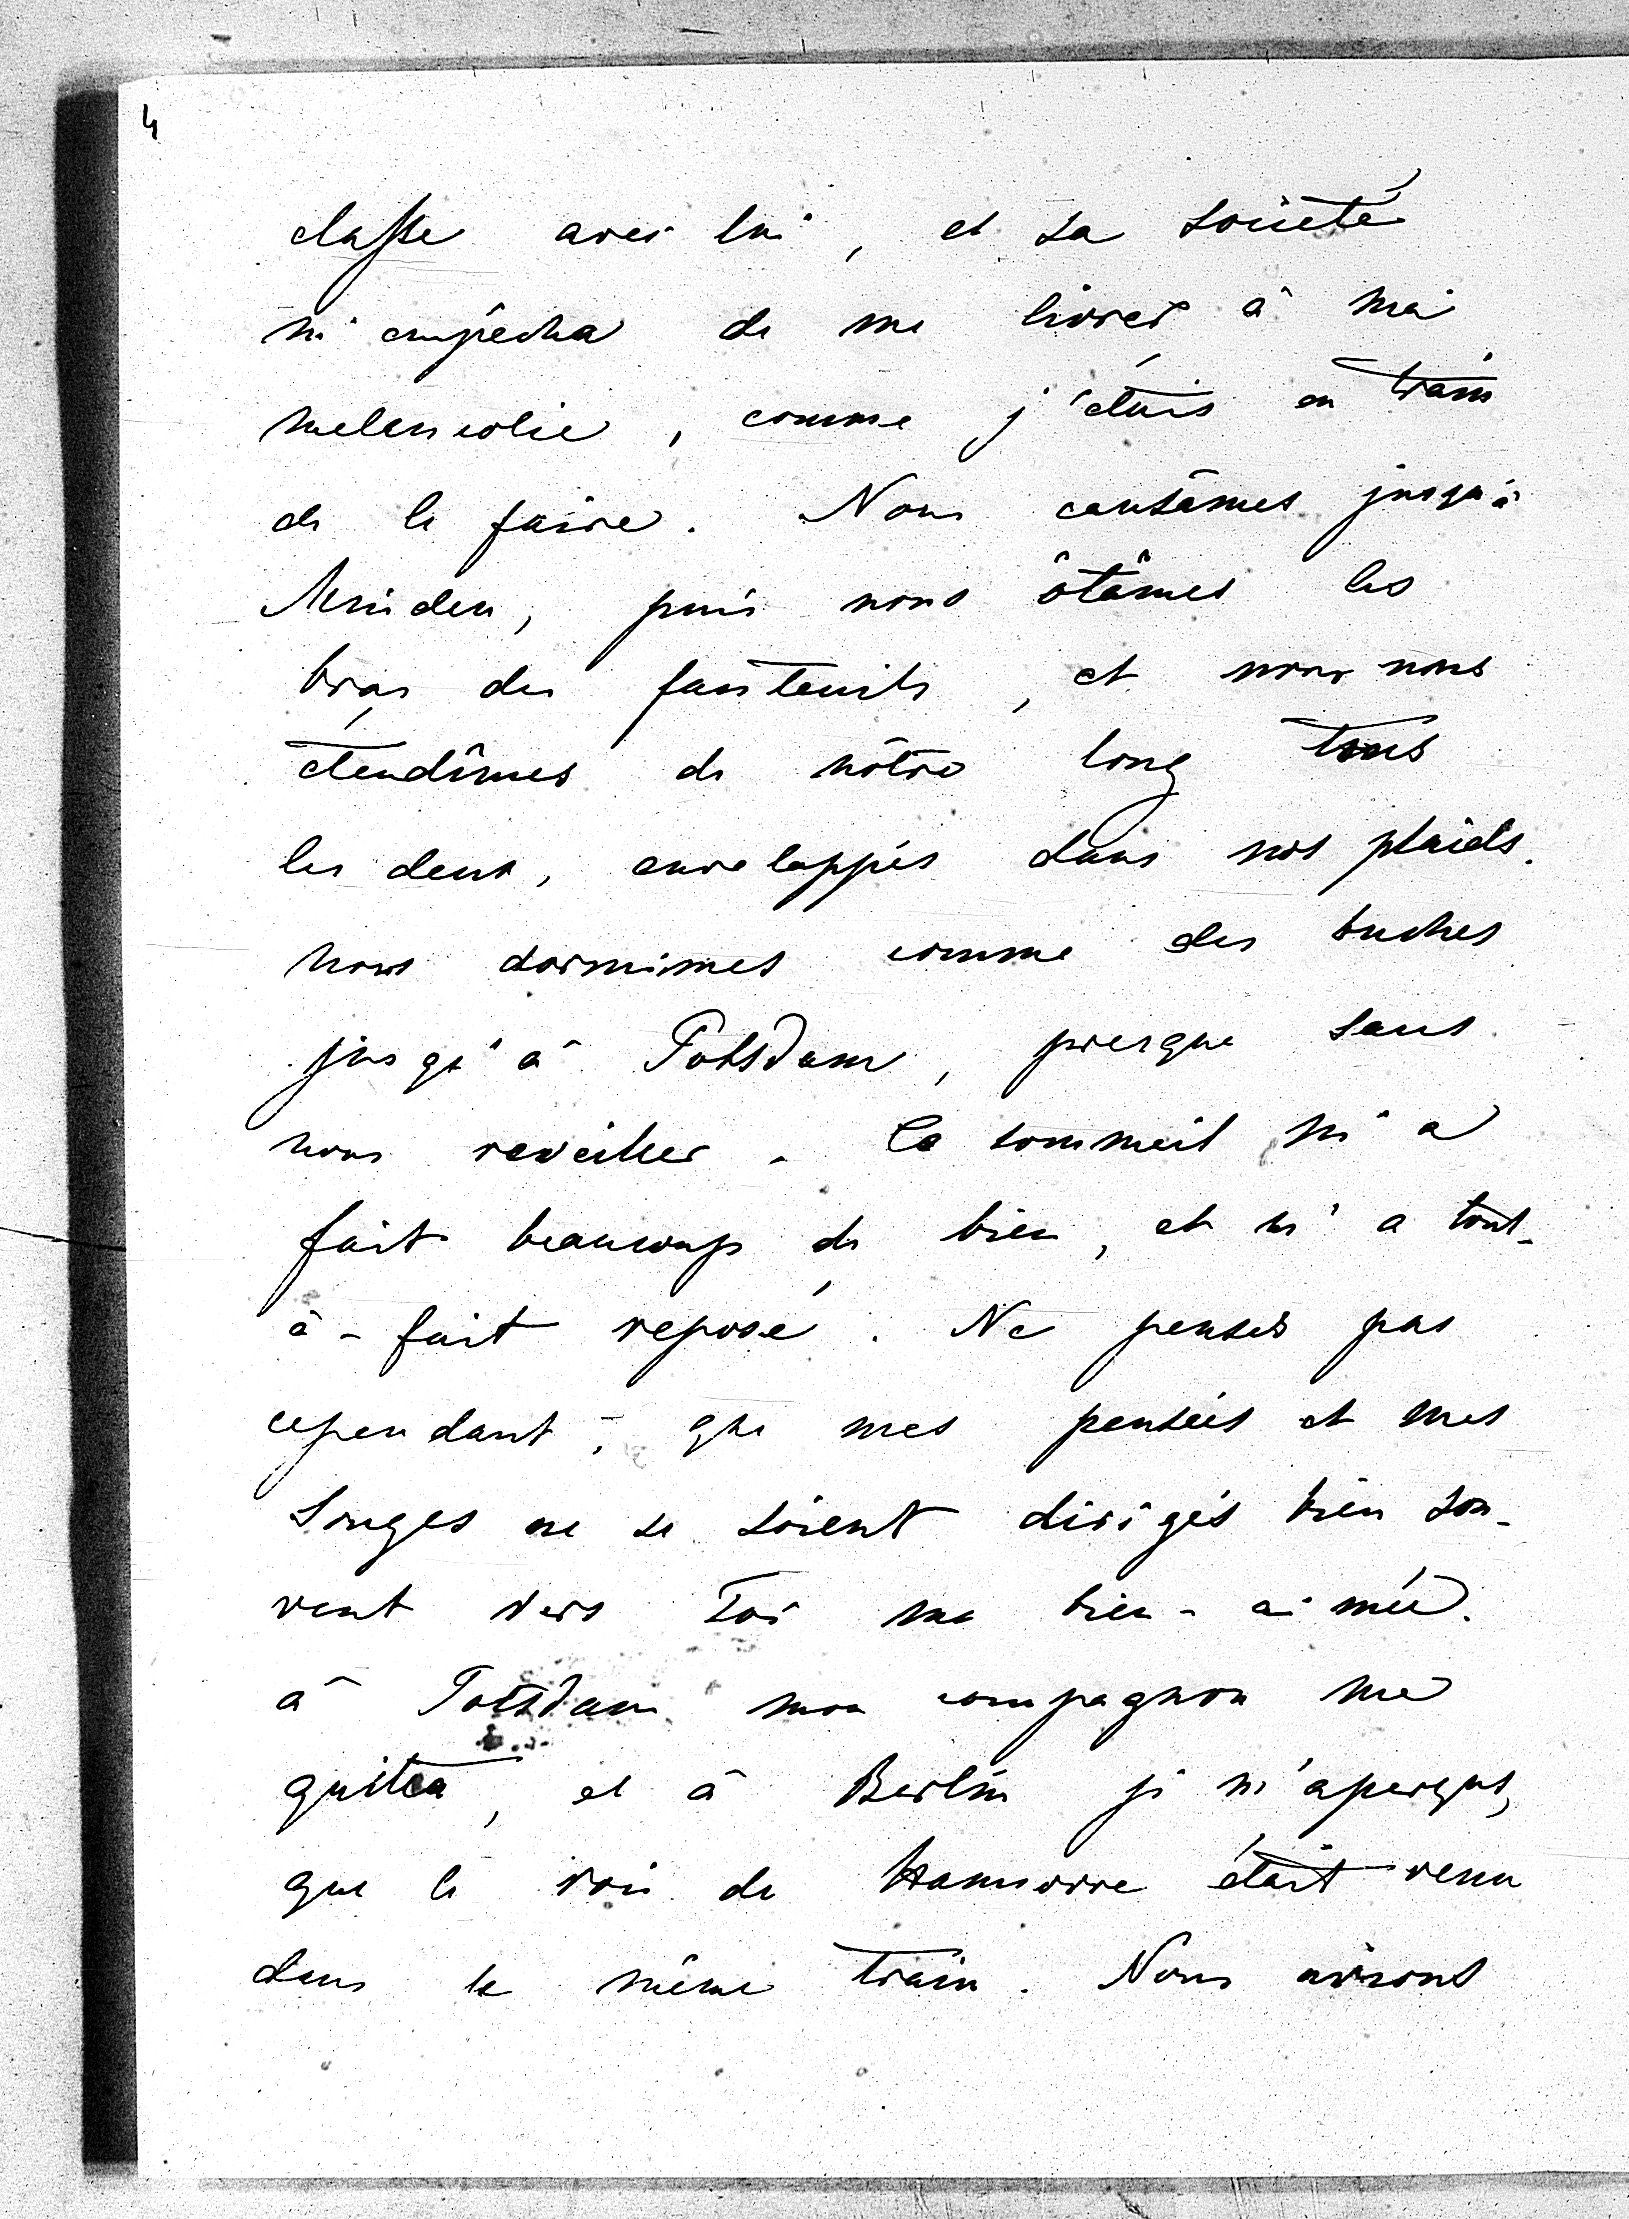 4
classe avec lui, et sa société
m'empêcha de me livrer à ma
melencolie, comme j'étais en train
de le faire. Nous causâmes jusqu'à
Minden, puis nous ôtâmes les
bras des fauteuils, et nous nous
étendîmes de nôtre long tous
les deux, enveloppés dans nos plaids.
nous dormîmes comme des buches
jusqu'à Potsdam, presque sans
nous reveiller. Ce sommeil m'a
fait beaucoup de bien, et m'a tout-
à-fait réposé. Ne penses pas
cependant, que mes pensées et mes
songes ne se soient dirigés bien sou-
vent vers Toi ma bien-aimée.
à Potsdam mon compagnon me
quitta, et à Berlin je m'aperçus,
que le roi de Hannovre était venu
dans le même train. Nous avions